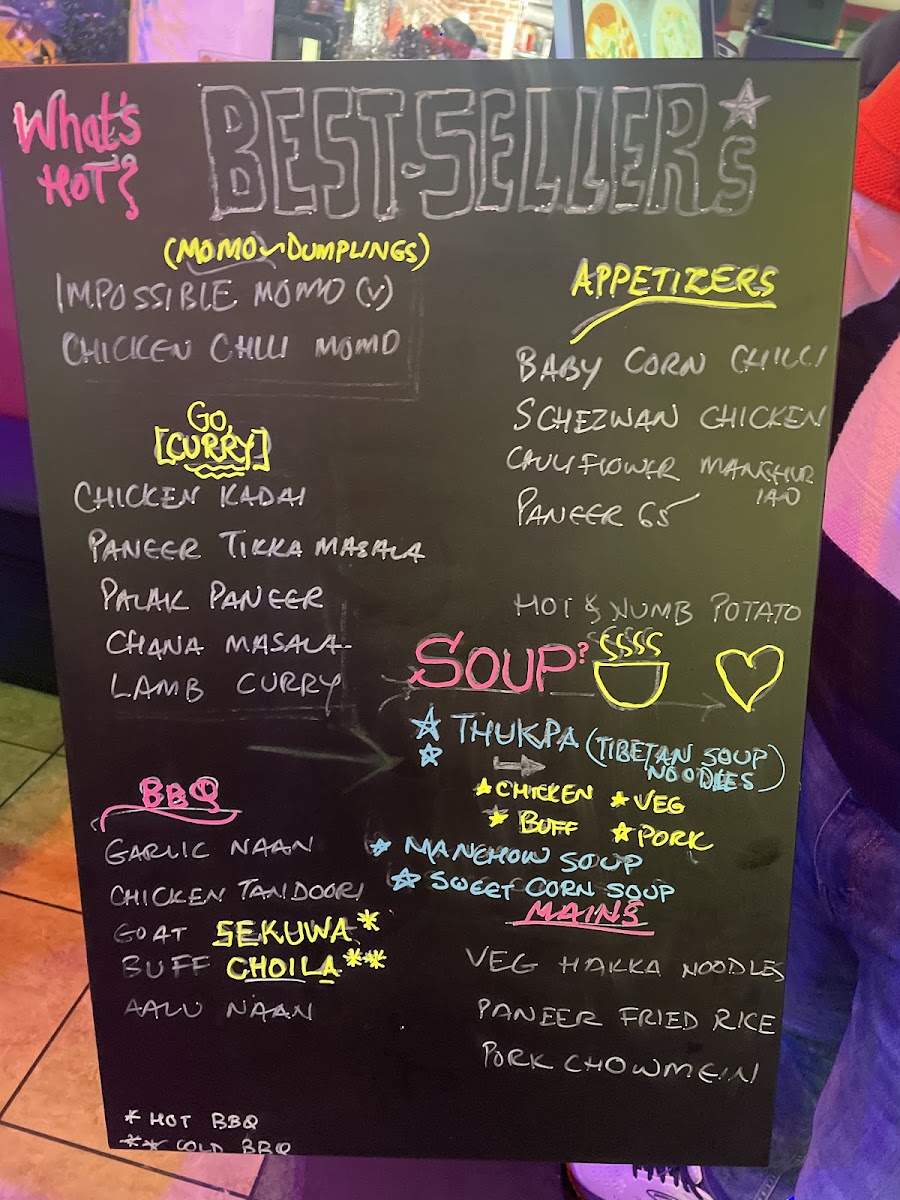 What's
HOT?
BEST-SELLERS
(MOMO~DUMPLINGS)
IMPOSSIBLE MOMO (V)
CHICKEN CHILLI MOMO
Go,
[CURRY]
CHICKEN KADAI
PANEER TIKKA MASALA
PALAK PANEER
CHANA MASALA
LAMB CURRY
BBQ
GARLIC NAAN
CHICKEN TANDOORI
GOAT SEKUWA*
BUFF CHOILA**
AALU NAAN
* HOT BBQ
** COLD BBQ
APPETIZERS
BABY CORN CHILLI
SCHEZWAN CHICKEN
CAULIFLOWER MANCHUR
IAN
PANEER 65
HOT & NUMB POTATO
SOUP?
THUKPA (TIBETAN SOUP
NOODLES)
CHICKEN VEG
BUFF PORK
MANCHOW SOUP
SWEET CORN SOUP
MAINS
VEG HAKKA NOODLES
PANEER FRIED RICE
PORK CHOWMEIN